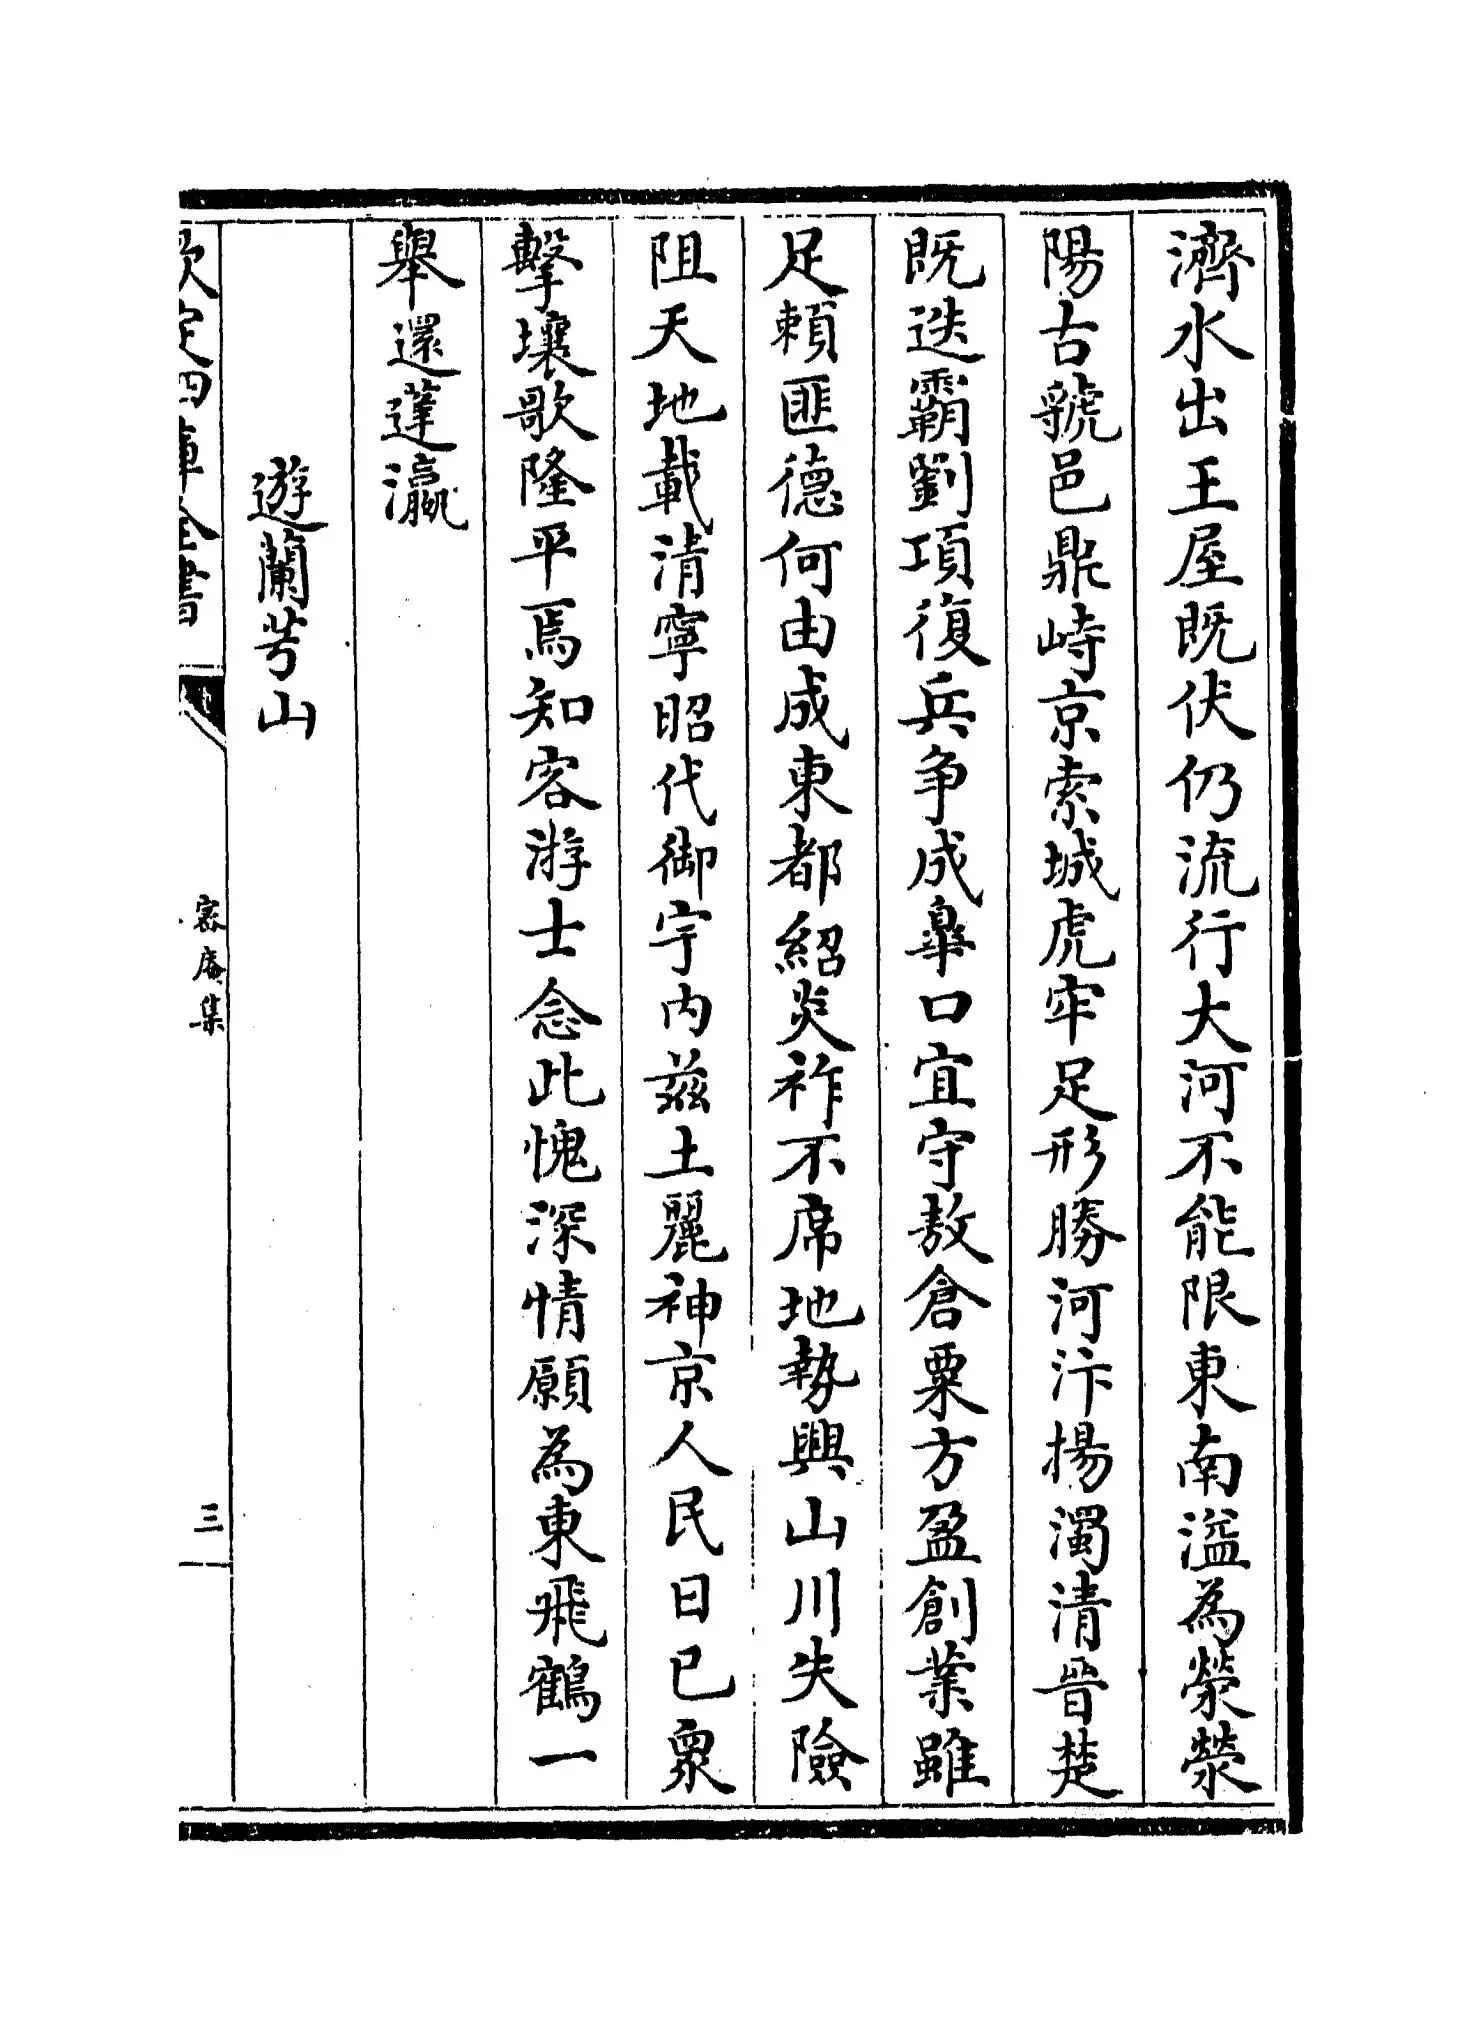 濟水出王屋既伏仍流行大河不能限東南溢為滎滎
陽古虢邑鼎峙京索城虎牢足形勝河汴揚濁清晉楚
既迭霸劉項復兵争成皋口宜守敖倉粟方盈創業雖
足賴匪德何由成東都紹炎祚不席地勢興山川失險
阻天地載清寧昭代御宇内兹土麗神京人民日已衆
擊壤歌隆平焉知客游士念此愧深情願為東飛鶴一
舉還蓬瀛
遊蘭芎山
欽定四庫全書
密庵集
三